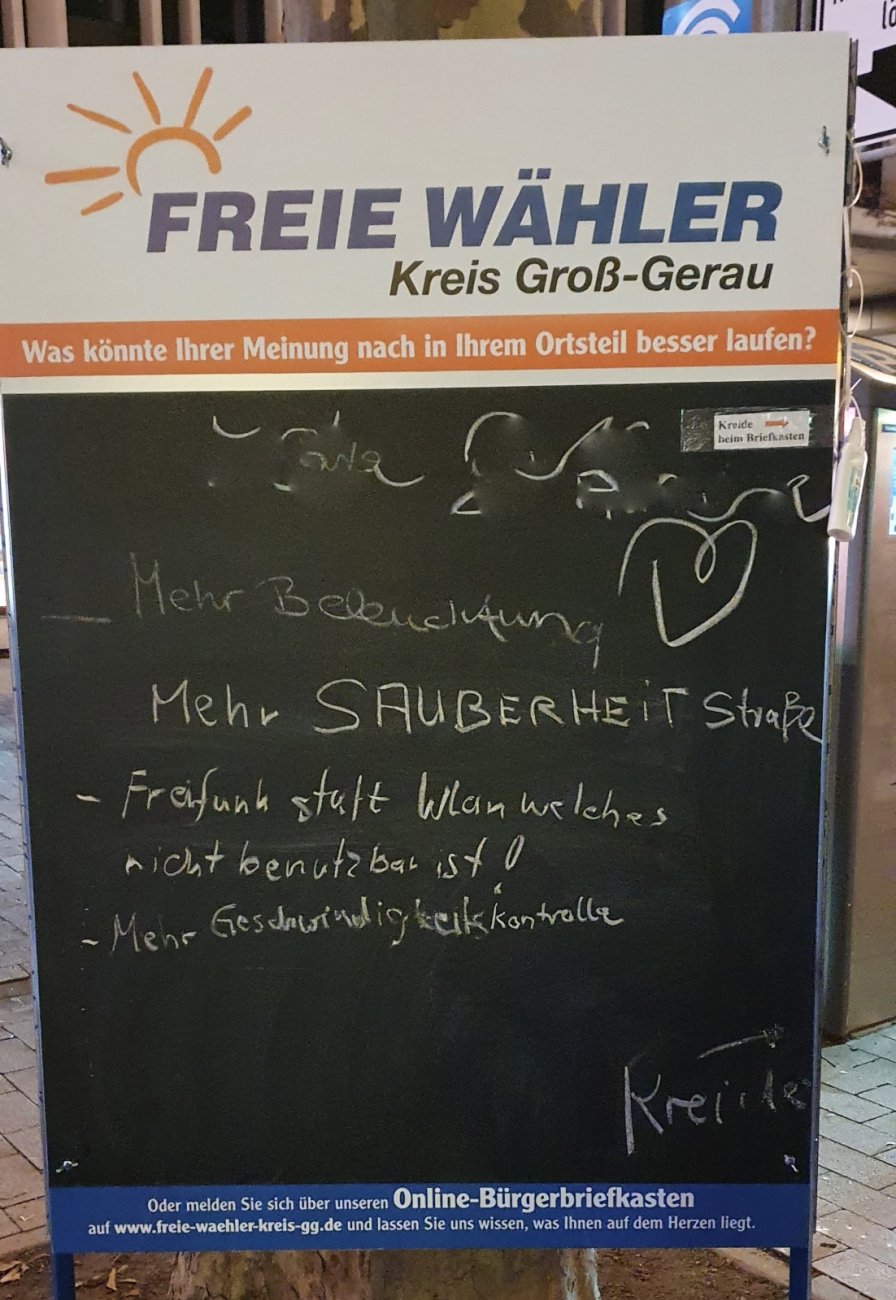 FREIE WÄHLER
Kreis Groß-Gerau
Was könnte Ihrer Meinung nach in Ihrem Ortsteil besser laufen?
Kreide
beim Briefkasten
Mehr Beleuchtung
Mehr SAUBERHEiT Straße
- Freifunk statt Wlan welches
nicht benutzbar ist!
- Mehr Geschwindigkeitskontrolle
Kreide
Oder melden Sie sich über unseren Online-Bürgerbriefkasten
auf www.freie-waehler-kreis-gg.de und lassen Sie uns wissen, was Ihnen auf dem Herzen liegt.